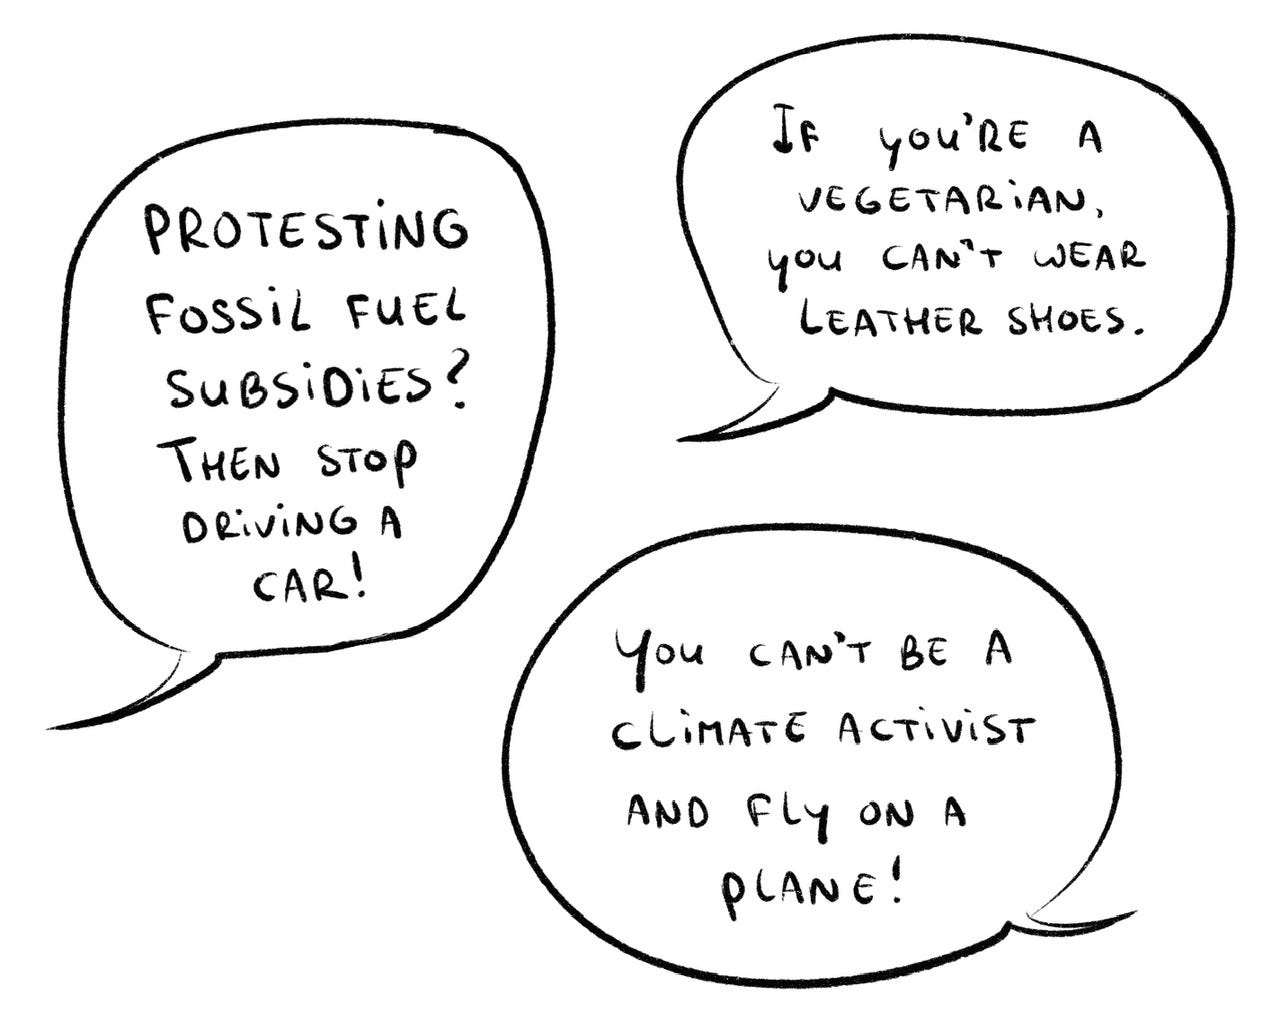 PROTESTING
FOSSIL FUEL
SUBSIDIES?
THEN STOP
DRIVING A
CAR!
IF YOU'RE A
VEGETARIAN,
YOU CAN'T WEAR
LEATHER SHOES.
YOU CAN'T BE A
CLIMATE ACTIVIST
AND FLY ON A
PLANE!